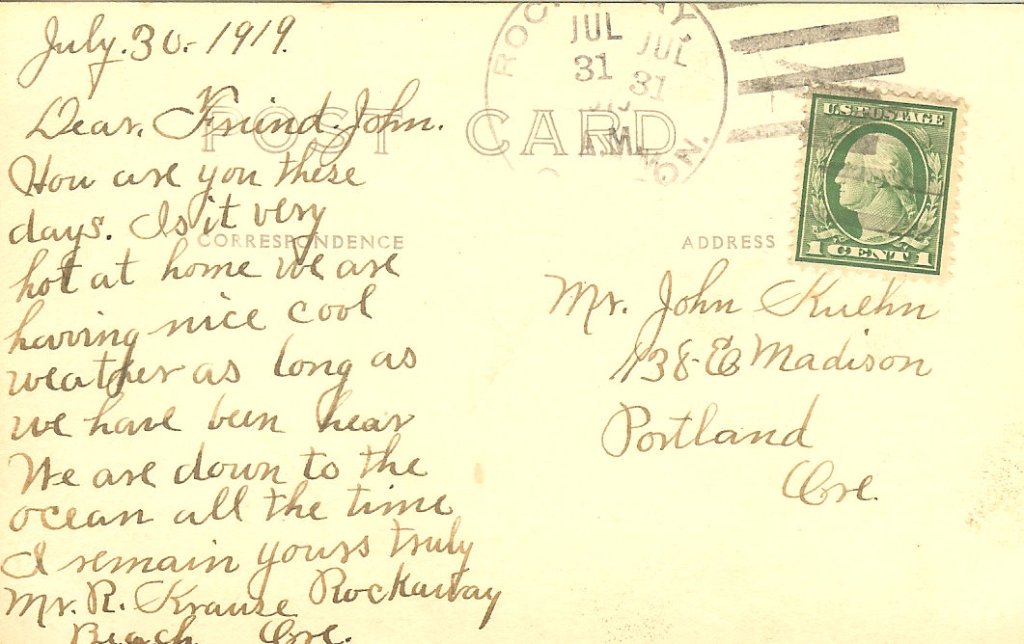 July. 30- 1919.
Dear. Friend. John.
How are you these
days. Is it very
hot at home we are
having nice cool
weather as long as
we have been hear
We are down to the
ocean all the time
I remain yours truly
Mr. R. Krause Rockaway
Beach Ore.
POST CARD
CORRESPONDENCE
ADDRESS
JUL JUL
31 31
M
ON.
U.S. POSTAGE
1 CENT 1
Mr. John Kuehn
138-E Madison
Portland
Ore.